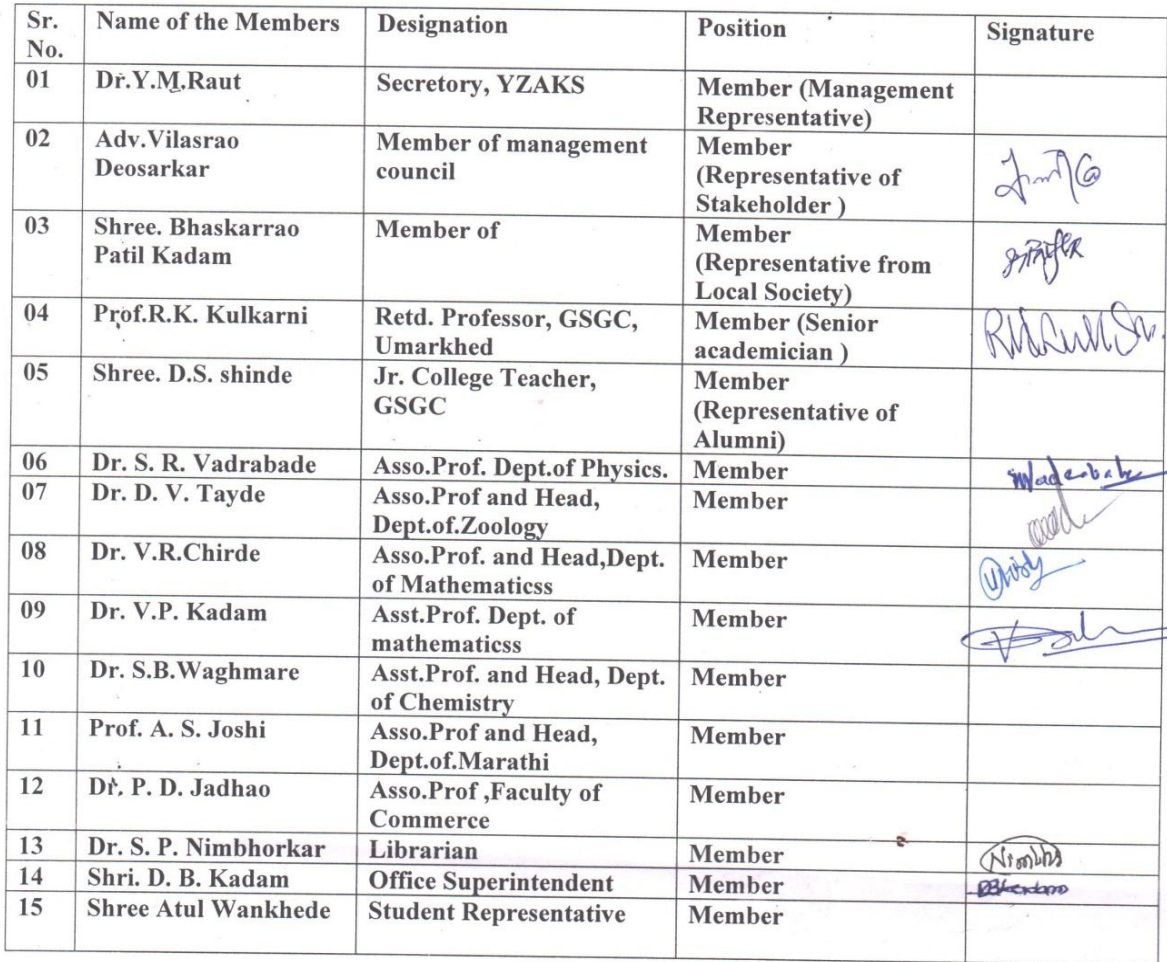 Sr. No. Name of the Members Designation Position Signature
01 Dr.Y.M.Raut Secretary, YZAKS Member (Management Representative)
02 Adv.Vilasrao Deosarkar Member of management council Member (Representative of Stakeholder )
03 Shree. Bhaskarrao Patil Kadam Member of Member (Representative from Local Society)
04 Prof.R.K. Kulkarni Retd. Professor, GSGC, Umarkhed Member (Senior academician )
05 Shree. D.S. shinde Jr. College Teacher, GSGC Member (Representative of Alumni)
06 Dr. S. R. Vadrabade Asso.Prof. Dept.of Physics. Member
07 Dr. D. V. Tayde Asso.Prof and Head, Dept.of.Zoology Member
08 Dr. V.R.Chirde Asso.Prof. and Head,Dept. of Mathematicss Member
09 Dr. V.P. Kadam Asst.Prof. Dept. of mathematicss Member
10 Dr. S.B.Waghmare Asst.Prof. and Head, Dept. of Chemistry Member
11 Prof. A. S. Joshi Asso.Prof and Head, Dept.of.Marathi Member
12 Dr. P. D. Jadhao Asso.Prof ,Faculty of Commerce Member
13 Dr. S. P. Nimbhorkar Librarian Member
14 Shri. D. B. Kadam Office Superintendent Member
15 Shree Atul Wankhede Student Representative Member